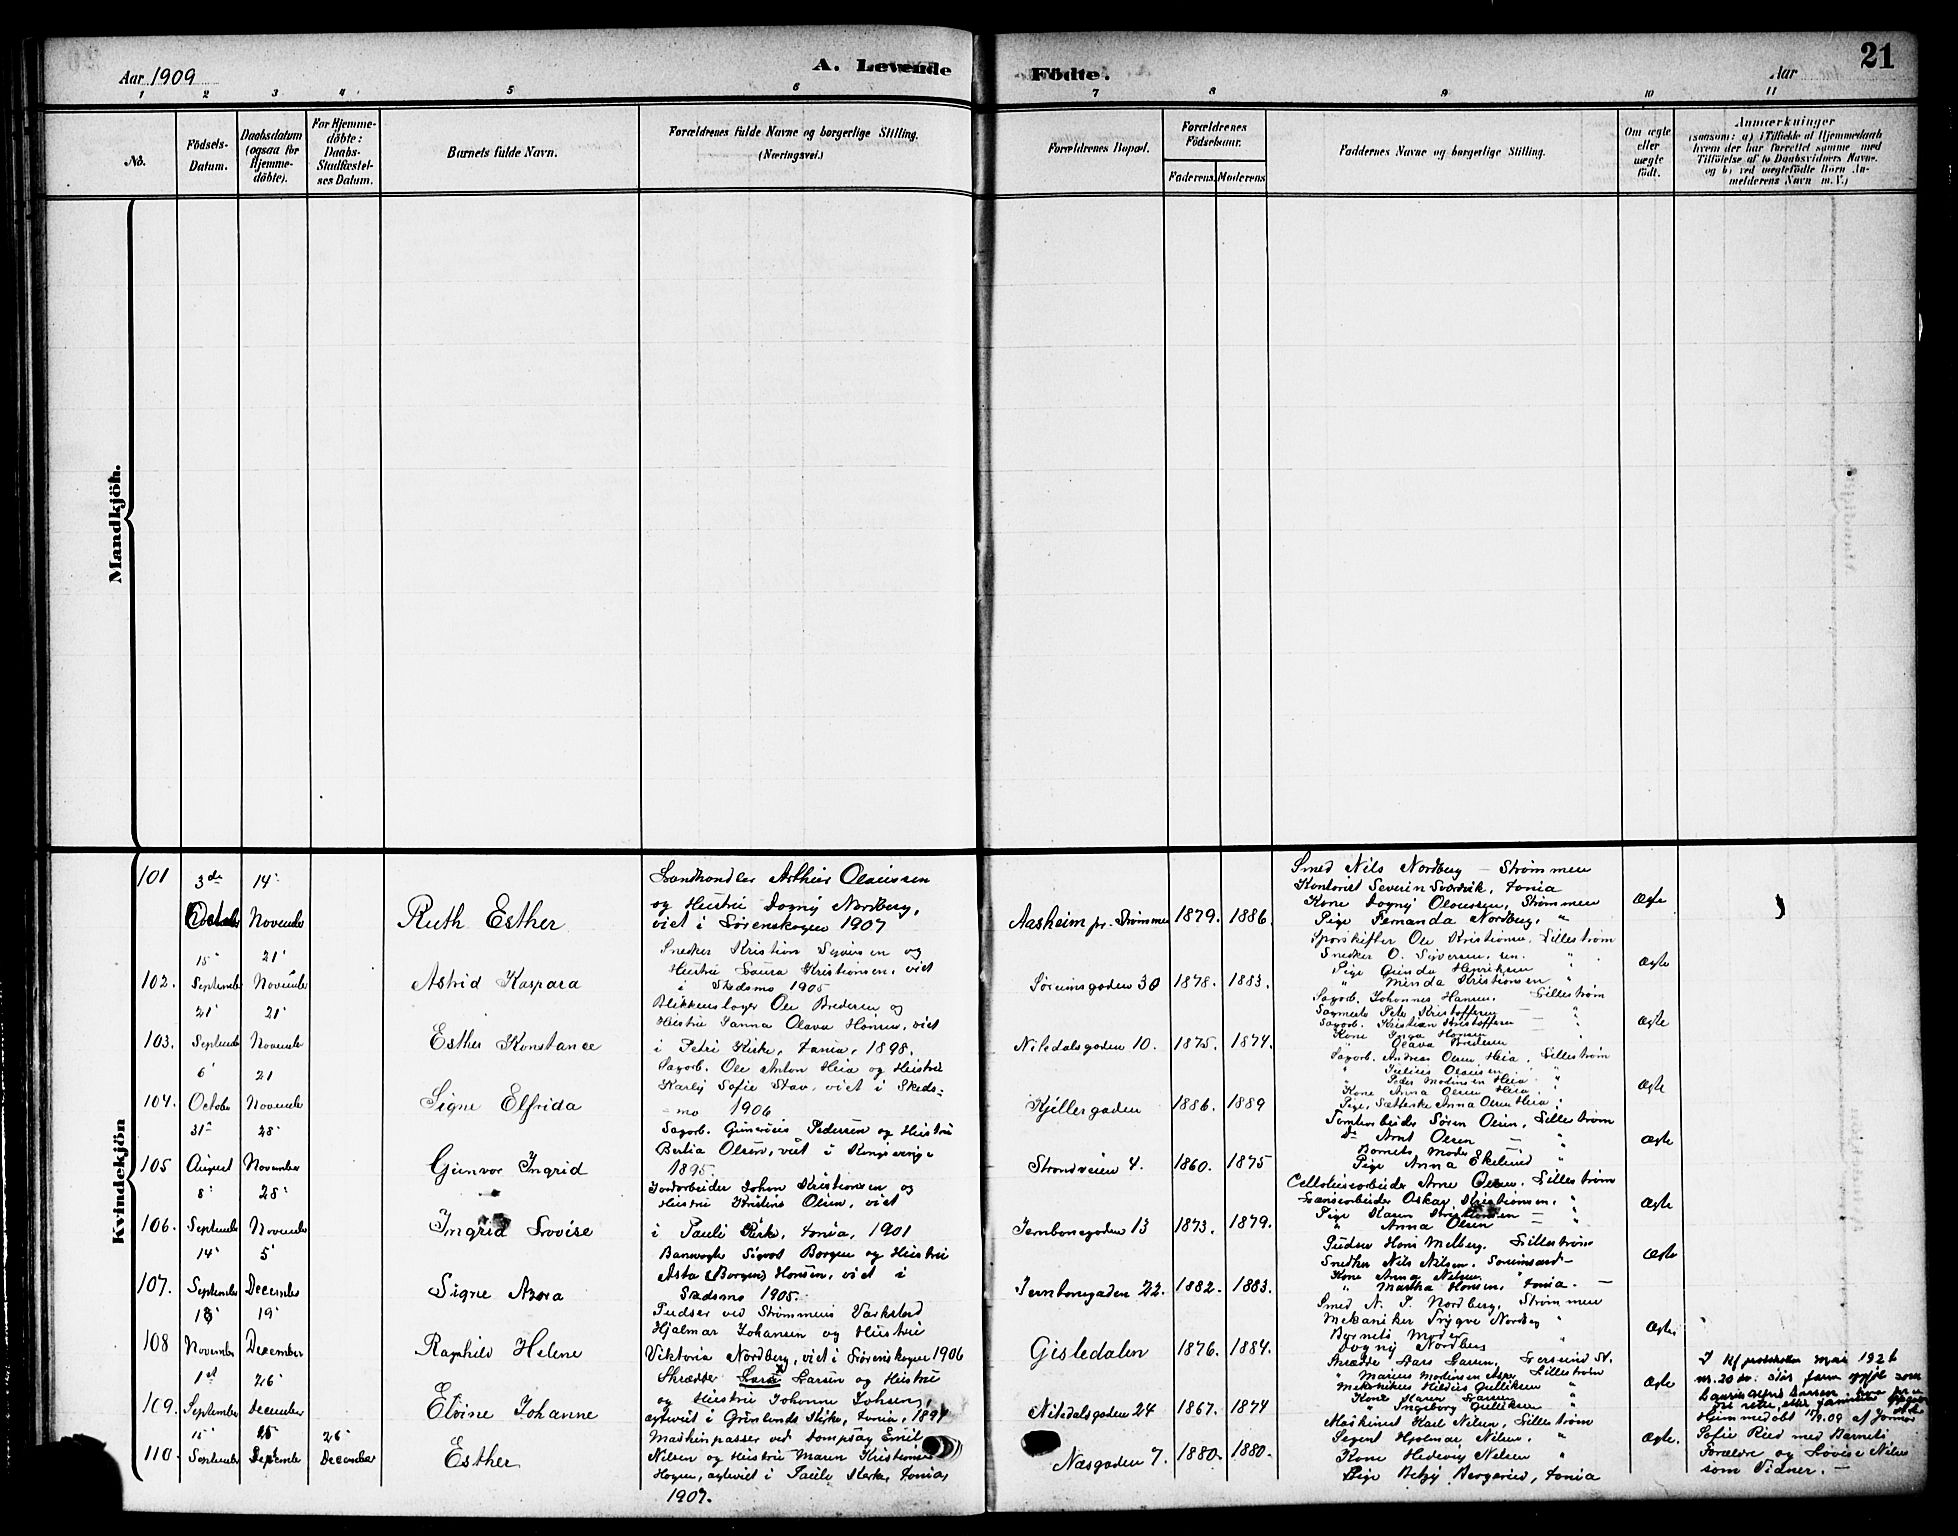 Aar 1909
A. Levende
Födte.
Aar
21
1 2 3 4 5 6 7 8 9 10 11
No.
Födsels-Datum.
Daabsdatum (ogsaa for Hjemme-döbte).
For Hjemme-döbte: Daabs-Stadfæstel-ses Datum.
Barnets fulde Navn.
Forældrenes fulde Navne og borgerlige Stilling.
(Næringsvei.)
Forældrenes Bopæl.
Forældrenes Födselsaar.
Faderens. Moderens.
Faddernes Navne og borgerlige Stilling.
Om ægte eller uægte födt.
Anmærkninger
(saasom: a) i Tilfælde af Hjemmedaab
hvem der har forrettet samme med
Tilföielse af to Daabsvidners Navne.
og b) ved uægtefödte Börn An-
melderens Navn m. V.)
Mandkjön.
Kvindekjön
101
3de October
14' November
Ruth Esther
Landhandler Arthur Olaussen
og Hustru Dagny Nordberg,
viet i Sørenskogen 1907
Aasheim pr. Strømmen
1879. 1886.
Smed Nils Nordberg – Strømmen
Kontorist Severin
Kone Dagny Olaussen, Strømmen
Pige Fernanda Nordberg, "
Ægte
102.
15' September
21' November
Astrid Kaspara
Snedker Kristian Syversen og
Hustru Laura Kristiansen, viet
i Skedsmo 1905
Sørumsgaden 30
1878. 1883.
Sporskifter Ole Kristiansen, Lillestrøm
Snedker O. Syversen, sen. "
Pige Gunda Henriksen "
" Minda Kristiansen "
Ægte
103.
21' September
21' November
Esther Konstance
Blikkenslager Ole Bredesen og
Hustru Janna Olava Hansen, viet
i Petri Kirke, 1898.
Nitedalsgaden 10.
1875. 1874.
Sagarb. Johannes Hansen, Lillestrøm
Sagmester Peter Kristoffersen
Sagarb. Kristian Kristoffersen
Kone Inga Hansen
" Olava Bredesen
Ægte
104.
6' October
21 November
Signe Elfrida
Sagarb. Ole Anton Heia og Hustru
Karly Sofie Stav, viet i Skeds-
mo 1906
Kjellergaden
1886. 1889
Sagarb. Andreas Olsen Heia, Lillestrøm
" Julius Olausen
" Peder Madinsen Heia
Kone Anna Olsen Heia
Pige, Anna Olsen Heia
Ægte
105
31' August
28' November
Gunvor Ingrid
Sagarb. Gunerius Pedersen og Hustru
Bertia Olsen, viet i Kongsvinger
1895.
Strandveien 4.
1860. 1875
Tomtearbeider Søren Olsen, Lillestrøm
do Arnt Olsen – "
Barnets Moder "
Pige Anna Ekelund "
Ægte
106.
8' September
28' November
Ingrid Lovise
Jordarbeider Johan Kristiansen og
Hustru Kristine Olsen, viet
i Pauli Kirke, 1901
Jernbanegaden 13
1873. 1879.
Cellulosearbeider Arne Olsen, Lillestrøm
Lænsearbeider Oskar Kristiansen, "
Pige Karen Kristiansen – "
" Anna Olsen "
Ægte
107.
14' September
5' December
Signe Azora
Banevogter Sigvod Borgen og Hustru
Asta (Borgen) Hansen, viet i
Skedsmo 1905.
Jernbanegaden 22.
1882. 1883.
Pudser Hans Melberg, Lillestrøm
Snedker Nils Nilsen, Sørumsand –
Kone Anna Nilsen, "
" Martha Hansen,
Ægte
108
18' November
19' December
Ragnhild Helene
Pudser ved Strømmens Værksted
Hjalmar Johansen og Hustru
Viktoria Nordberg, viet i Sørenskogen 1906
Gisledalen
1876. 1884.
Smed N. P. Nordberg, Strømmen
Mekaniker Trygve Nordberg "
Barnets Moder
Dagny Nordberg "
Ægte
109.
1st September
26' December
Elvine Johanne
Skrædder Lars Larsen og Hustru
og Hustru Johanne Johsen,
egteviet i Grønlands Kirke, 1894
Nitedalsgaden 24
1867. 1874
Skrædder Lars Larsen,
" Marius Madinsen Asper Lillestrøm
Mekanikus Hildus Gulliksen "
Kone Maren Larsen "
" Ingeborg Gulliksen "
Ægte
110.
15' September
25' December
26' December
Esther
Maskinpasser ved Dampsag Emil
Nilsen og Hustru Maren Kristiansen
Hagen, egteviet i Pauls Kirke,
1907.
Næsgaden 7.
1880. 1880.
Maskinist Karl Nilsen, Lillestrøm
Sergent Hjalmar Nilsen, "
Kone Hedevig Nilsen "
Pige Betzy Bergerud,
Ægte.
Hjemmedøbt 17/9.09 af Jormor
Sofie Ried med Barnets
Forældre og Lovise Nilsen
som Vidner. –